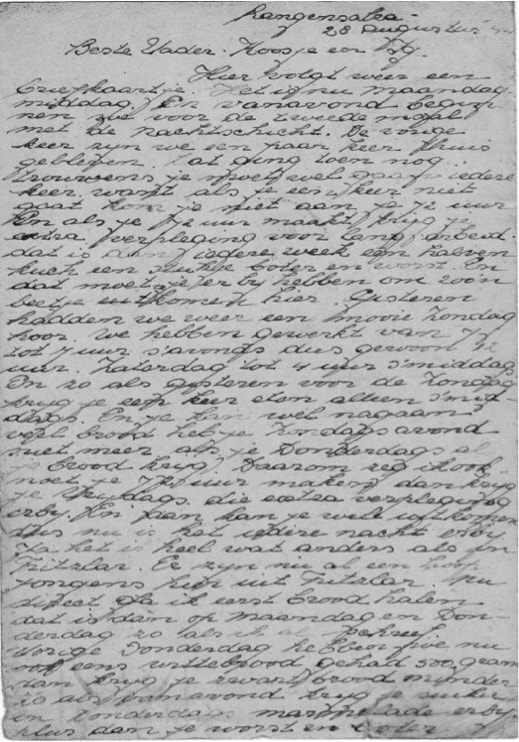 Langensalza
28 augustus
Beste Vader. Koosje en
Hier volgt weer een
briefkaartje. Het is nu maandag
middag. En vanavond begin
nen we voor de tweede maal
met de nachtschicht. De vorige
keer zijn we een paar keer thuis
gebleven. dat ging toen nog
trouwens je moet wel gaan iedere
keer want als je een keer niet
gaat kom je niet aan je 72 uur
En als je 72 uur maakt krijg je
extra verpleging voor lang arbeid.
dat is dan iedere week een halven
kuch een stukje boter en worst. En
dat moet je er bij hebben om zoo'n
beetje uit komen hier. Gisteren
hadden we weer een mooie Zondag
hoor. We hebben gewerkt van 7
tot 7 uur s'avonds dus gewoon 12
uur. Zaterdag tot 4 uur s'middag
En zo als gisteren voor de Zondag
krijg je een keer eten alleen s'mid-
dags. En je kan wel nagaan
veel brood heb je Zondagsavond
niet meer als je Donderdags al
je brood krijg. Daarom zeg ik ook
moet je 72 uur maken dan krijg
je Vrijdags die extra verpleging
erbij. En dan kan je wel uitkomen
dus nu is het iedere nacht erbij
Ja het is heel wat anders als in
Fritzlar. Er zijn nu al een hoop
jongens hier uit Fritzlar. Nu
direct ga ik eerst brood halen
dat is dan op maandag en Don-
derdag zo als ik al schreef.
Vorige Donderdag hebben we nu
ook eens wittebrood gehad 500 gram
dan krijg je zwart brood minder
zo als vanavond krijg je suiker
en donderdags marmelade erbij
plus dan je worst en boter